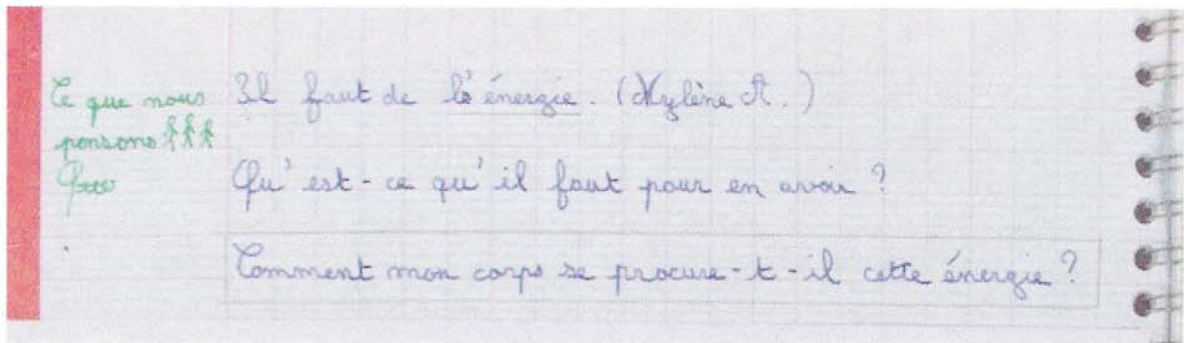 Ce que nous
pensons
Il faut de l'énergie. (Mylène A.)
Qu'est-ce qu'il faut pour en avoir ?
Comment mon corps se procure-t-il cette énergie ?